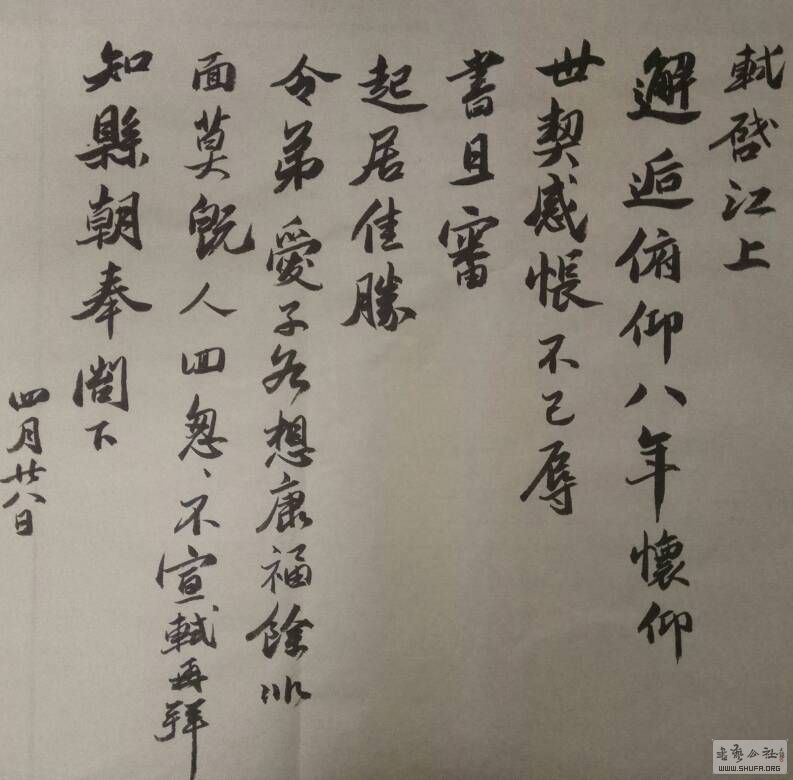 軾啓江上
邂逅俯仰八年懷仰
世契感悵不已辱
書且審
起居佳勝
令弟愛子各想康福餘非
面莫既人回怱〻不宣軾再拜
知縣朝奉閤下
四月廿八日
書藝公社
WWW.SHUFA.ORG